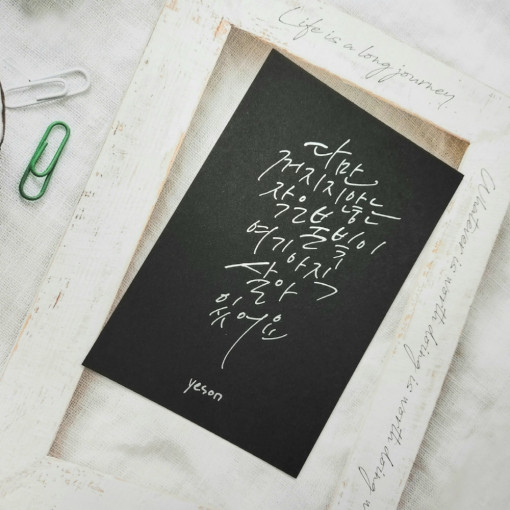 Life is a long journey
다만
꺼지지 않는
작은 불빛이
여기 아직
살아
있어요
yeson
Whatever is worth doing is worth doing